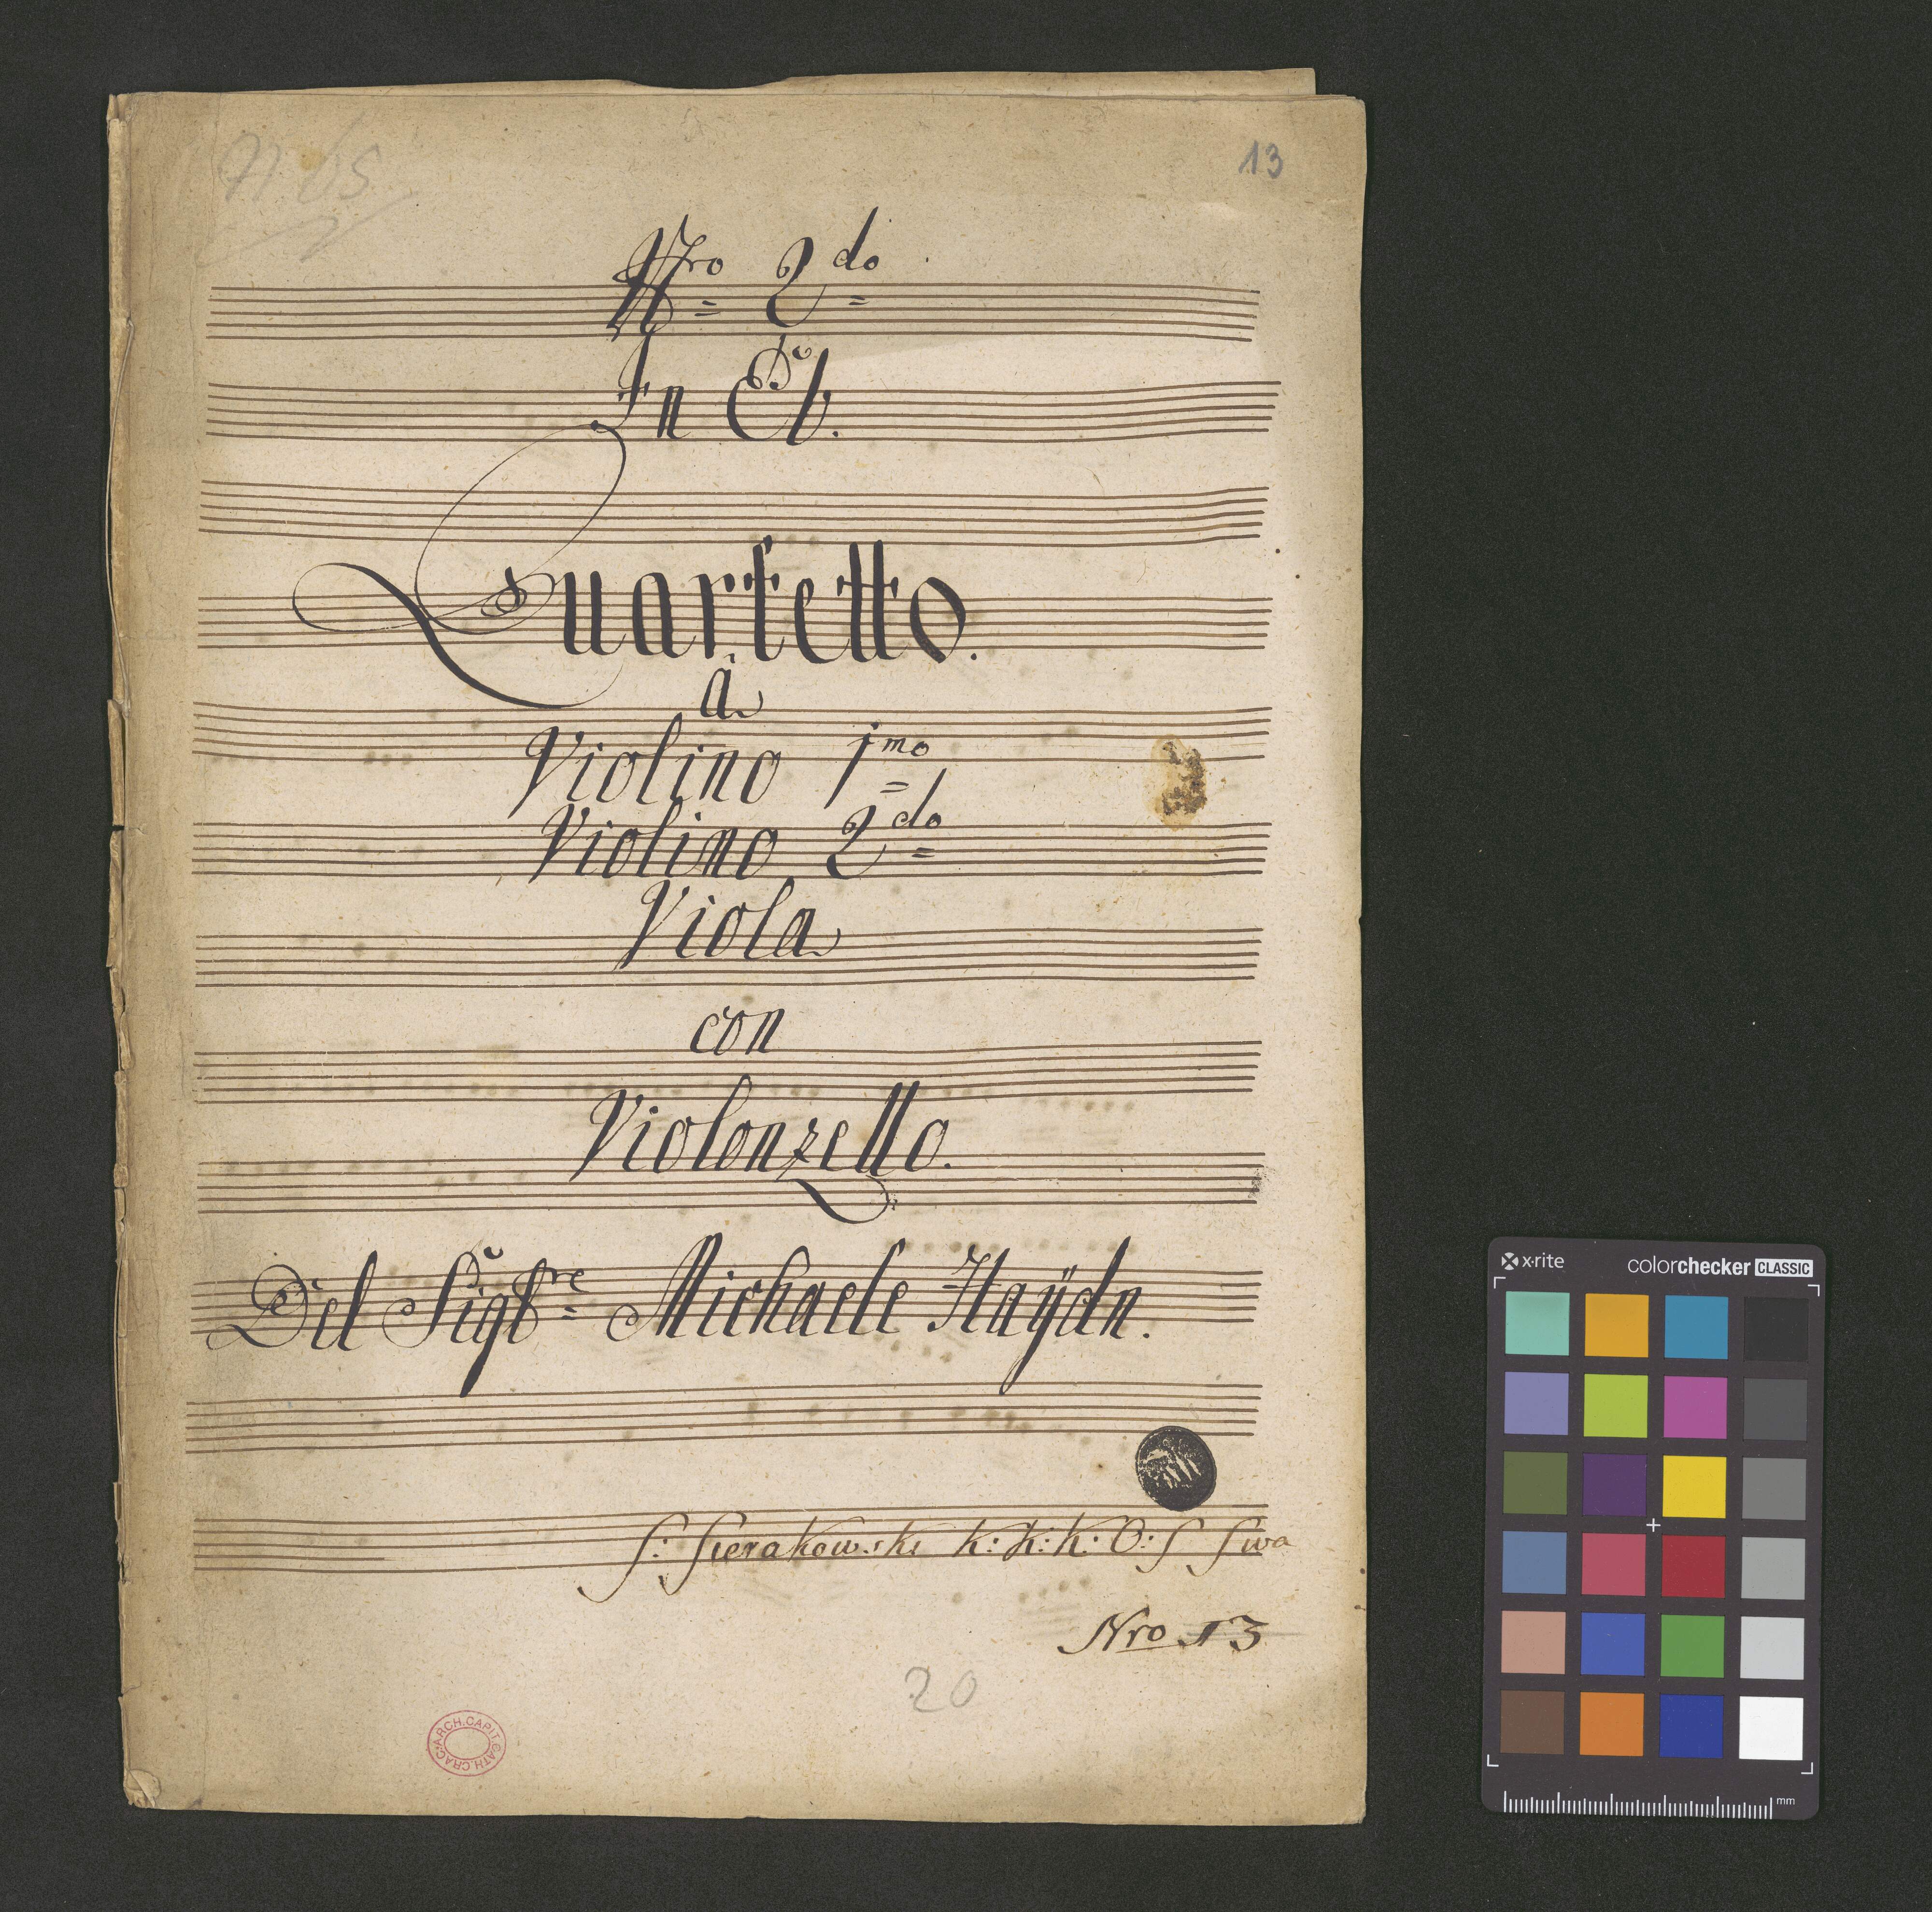 13
Nro 2do
In Eb.
Quartetto.
à
Violino 1mo
Violino 2do
Viola
con
Violonzello.
Del Sigre Michaele Haÿdn.
S: Sierakowski K: K: K: O: S
Nro 13
20
ARCH. CAPIT. CATH. CRAC.
x·rite colorchecker CLASSIC
mm